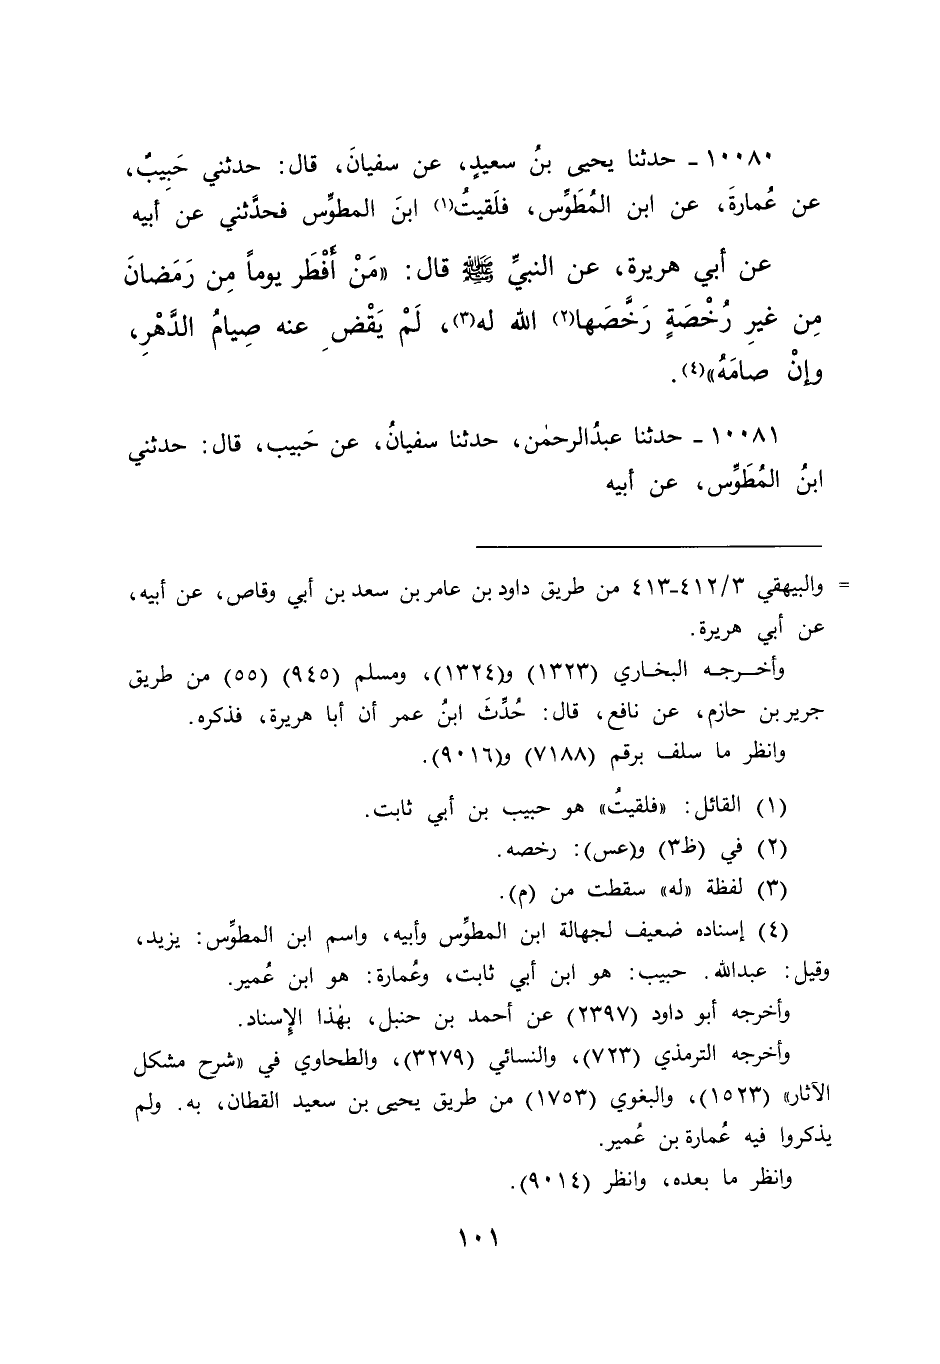 ١٠٠٨٠ ـ حدثنا يحيى بنُ سعيدٍ، عن سفيانَ، قال: حدثني حَبِيبٌ،
عن عُمارةَ، عن ابن المُطَوِّس، فلَقيتُ(١) ابنَ المطوِّس فحدَّثني عن أبيه
عن أبي هريرة، عن النبيِّ ﷺ قال: «مَنْ أَفْطَر يوماً مِن رَمَضانَ
مِن غيرِ رُخْصَةٍ رَخَّصَها(٢) الله له(٣)، لَمْ يَقْضِ عنه صِيامُ الدَّهْرِ،
وإنْ صامَهُ»(٤).
١٠٠٨١ ـ حدثنا عبدُالرحمٰن، حدثنا سفيانُ، عن حَبيب، قال: حدثني
ابنُ المُطَوِّس، عن أبيه
= والبيهقي ٤١٢/٣-٤١٣ من طريق داود بن عامر بن سعد بن أبي وقاص، عن أبيه،
عن أبي هريرة.
وأخرجه البخاري (١٣٢٣) و(١٣٢٤)، ومسلم (٩٤٥) (٥٥) من طريق
جرير بن حازم، عن نافع، قال: حُدِّثَ ابنُ عمر أن أبا هريرة، فذكره.
وانظر ما سلف برقم (٧١٨٨) و(٩٠١٦).
(١) القائل: «فلقيتُ» هو حبيب بن أبي ثابت.
(٢) في (ظ٣) و(عس): رخصه.
(٣) لفظة «له» سقطت من (م).
(٤) إسناده ضعيف لجهالة ابن المطوِّس وأبيه، واسم ابن المطوِّس: يزيد،
وقيل: عبدالله. حبيب: هو ابن أبي ثابت، وعُمارة: هو ابن عُمير.
وأخرجه أبو داود (٢٣٩٧) عن أحمد بن حنبل، بهٰذا الإِسناد.
وأخرجه الترمذي (٧٢٣)، والنسائي (٣٢٧٩)، والطحاوي في «شرح مشكل
الآثار» (١٥٢٣)، والبغوي (١٧٥٣) من طريق يحيى بن سعيد القطان، به. ولم
يذكروا فيه عُمارة بن عُمير.
وانظر ما بعده، وانظر (٩٠١٤).
١٠١